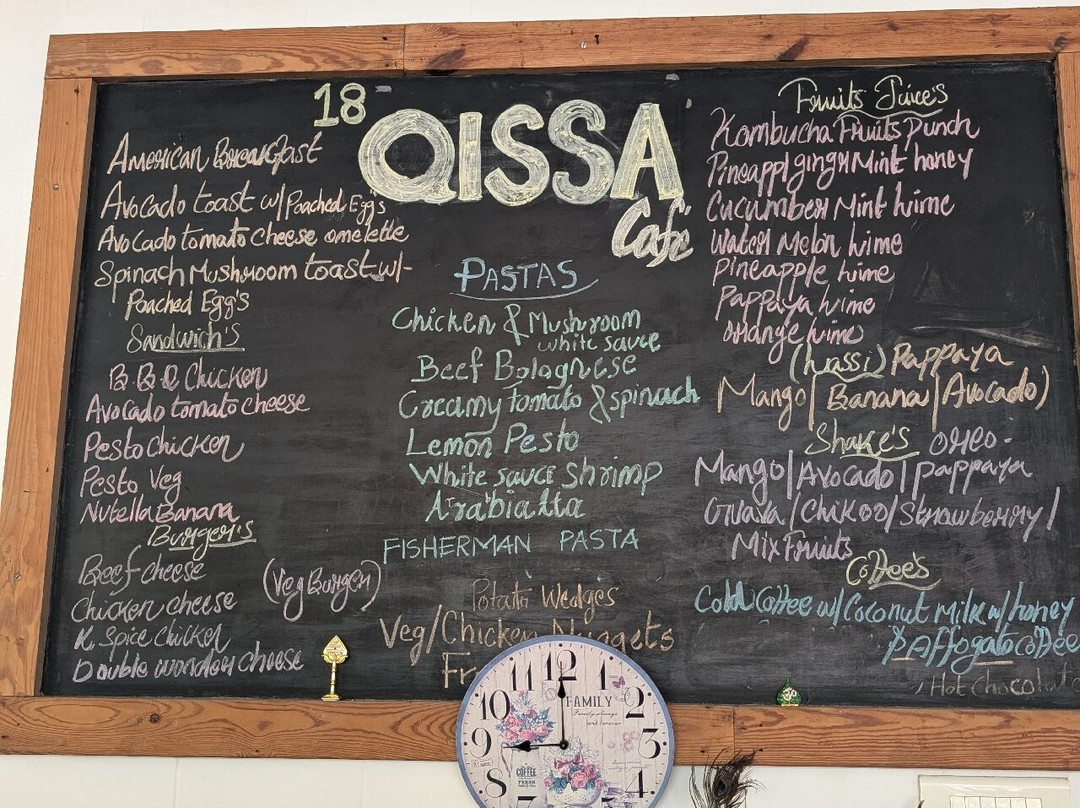 18 QISSA
Cafe
American Breakfast
Avocado toast w/ Poached Egg's
Avocado tomato cheese omelette
Spinach Mushroom toast w/-
Poached Egg's
Sandwich's
B.B.Q Chicken
Avocado tomato cheese
Pesto chicken
Pesto Veg
Nutella Banana
Burger's
Beef cheese
(Veg Burger)
Chicken cheese
K. Spice chicken
Double wonder cheese
PASTAS
Chicken & Mushroom
white sauce
Beef Bolagnese
Creamy tomato & spinach
Lemon Pesto
White sauce shrimp
Arabiatta
FISHERMAN PASTA
Potato Wedges
Veg/Chicken Nuggets
Fr
Fruits Juice's
Kombucha Fruits Punch
Pineappl ginger Mint honey
Cucumber Mint lime
Water Melon lime
Pineapple lime
Pappaya lime
orange lime
(Lassi) Pappaya
Mango/Banana/Avocado)
Shake's oreo-
Mango/Avocado/pappaya
Guava/Chikoo/Strawberry/
Mix Fruits
Coffee's
Cold Coffee w/ Coconut Milk w/ honey
& Affogato coffee
Hot Chocolat
11 12 1
10 2
9 3
8 4
FAMILY
COFFEE